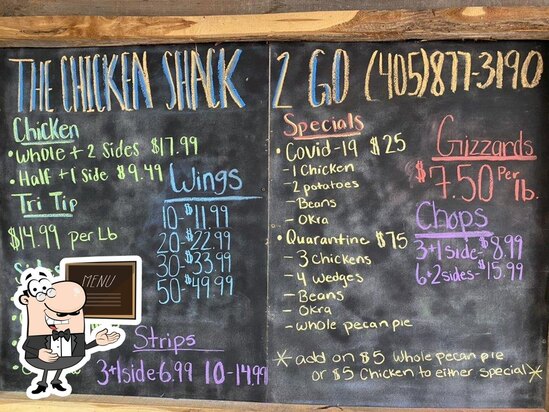 THE CHICKEN SHACK 2 GO (405)877-3190
Chicken
• Whole + 2 Sides $17.99
• Half + 1 Side $9.49
Tri Tip
$14.99 per Lb
Wings
10-$11.99
20-$22.99
30-$33.99
50-$49.99
MENU
Strips
3+1side-6.99 10-14.99
Specials
• Covid-19 $25
-1 Chicken
2 potatoes
-Beans
-Okra
• Quarantine $75
-3 chickens
-4 wedges
-Beans
-Okra
-whole pecan pie
Gizzards
$7.50 Per lb.
Chops
3+1side-$8.99
6+2sides-$15.99
* add on $5 Whole pecan pie
or $5 Chicken to either special *